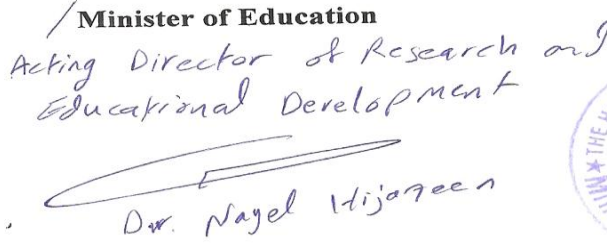 / Minister of Education
Acting Director of Research and
Educational Development
Dr. Nayel Hijazeen
MIN★THE H